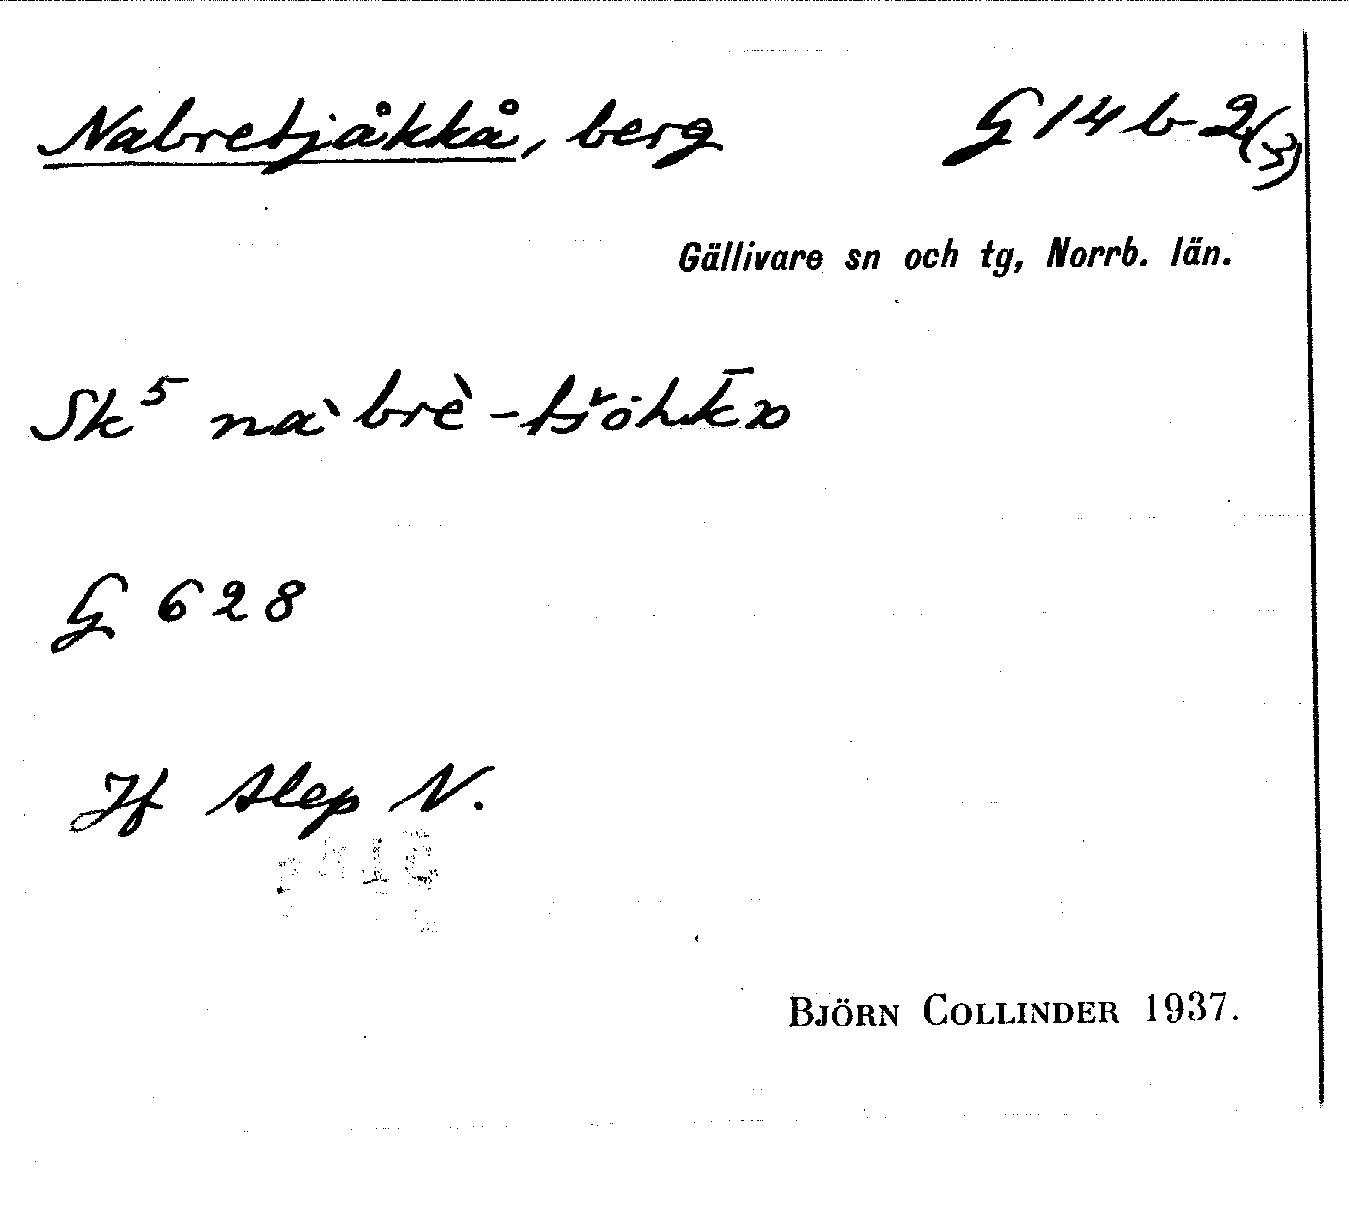 Nabretjåkkå, berg G 14 b 2(3)
Gällivare sn och tg, Norrb. län.
Sk⁵ na`brè-tšöhk̄ɒ
G 628
Jf Alep N.
BJÖRN COLLINDER 1937.